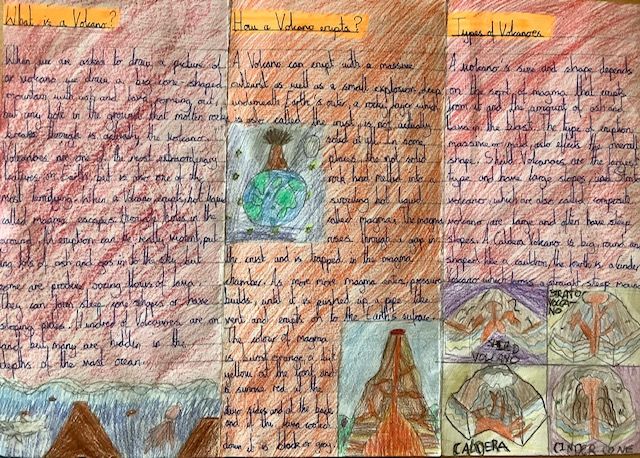 What is a Volcano?
When we are asked to draw a picture of
a volcano we draw a big cone-shaped
mountain with ash and lava coming out,
but any hole in the ground that molten rock
breaks through is actually the volcano.
Volcanoes are one of the most extraordinary
features on Earth but is also one of the
most terrifying. When a Volcano erupts hot liquid
called magma escapes through holes in the
ground. An eruption can be really violent, put
ing lots of ash and gas into the sky, but
some are produce oozing flows of lava.
They can form steep cone shapes or have
sloping sides. Hundred of volcanoes are on
land but many are hidden in the
depths of the vast ocean.
How a Volcano erupts?
A Volcano can erupt with a massive
outburst as well as a small explosion, deep
underneath Earth's outer, a rocky layer which
is also called the crust is not actually
solid at all. In some
places, the hot solid
rock had melted into a
swirling hot liquid
called magma. The magma
rises through a gap in
the crust and is trapped in the magma
chamber. As more more magma enters, pressure
builds, until it is pushed up a pipe like
vent and erupts on to the Earth's surface.
The colour of magma
is burnt orange a bit
yellow at the front and
is sunrise red at the
sides and at the back
and if the lava cooled
down it is black or gray.
Types of Volcanoes
A volcano is size and shape depends
on the sort of magma that erupts
from it and the amount of ash and
lava in the blast. The type of eruption
massive or mild also effects the overall
shape. Shield Volcanoes are the largest
type and have large slopes and Strato
volcano, which are also called composite
volcano are large and often have steep
slopes. A Caldera volcano is big, round and
shaped like a cauldron, the fourth is a cinder
Volcano which forms a straight steep
SHIELD
VOLCANO
STRATO
VOLCA-
NO
CALDERA
CINDER CONE